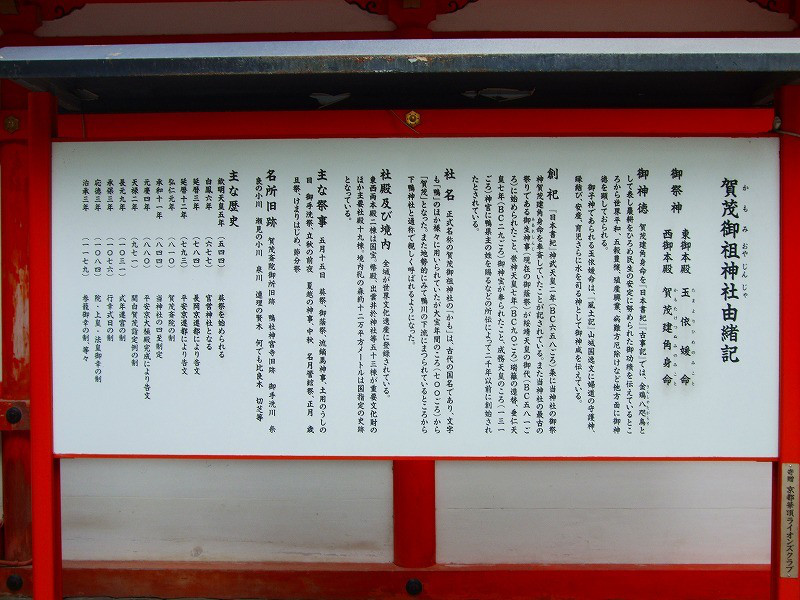 賀茂御祖神社由緒記
かもみおやじんじゃ
御祭神　東御本殿　玉依媛命
たまよりひめのみこと
西御本殿　賀茂建角身命
かもたけつぬみのみこと
御神徳　賀茂建角身命を「日本書紀」「古事記」では、金鵄八咫烏と
して表し農耕をひろめ民生の安定に努められた御功績を伝えているとこ
ろから世界平和、五穀豊穣、殖産興業、病難方災厄除けなど他方面に御神
徳を顕しておられる。
御子神であられる玉依媛命は、「風土記」山城国逸文に婦道の守護神、
縁結び、安産、育児さらに水を司る神として御神威を伝えている。
創祀　「日本書紀」神武天皇二年（ＢＣ６５８ごろ）条に当神社の御祭
神賀茂建角身命を奉斎していたことが記されている。また当神社の最古の
祭りである御生神事（現在の御蔭祭）が綏靖天皇の御代（ＢＣ５８１ご
ろ）に始められたこと、崇神天皇七年（ＢＣ９０ごろ）瑞籬の造替、垂仁天
皇七年（ＢＣ２９ごろ）御神宝が奉られたこと、成務天皇のころ（１３１
ごろ）神宮に鴨県主の姓を賜るなどの所伝によって二千年以前に創始され
たとされている。
社名　正式名称の賀茂御祖神社の「かも」は、古代の国名であり、文字
も「鴨」のほか様々に用いられていたが大宝年間のころ（７００ごろ）から
「賀茂」となった。また地勢的にみて鴨川の下流にまつられているところから
下鴨神社と通称で親しく呼ばれるようになった。
社殿及び境内　全域が世界文化遺産に登録されている。
東西両本殿二棟は国宝、祭殿、出雲井於神社等五十三棟が重要文化財の
ほか主要社殿十九棟、境内糺の森約十二万平方メートルは国指定の史跡
となっている。
主な祭事　五月十五日　葵祭、御蔭祭、流鏑馬神事、土用のうしの
日　御手洗祭、立秋の前夜　夏越の神事、中秋　名月管絃祭、正月　歳
旦祭、けまりはじめ、節分祭
名所旧跡　賀茂斎院御所旧跡　鴨社神宮寺旧跡　御手洗川　奈
良の小川　瀬見の小川　泉川　連理の賢木　何でも比良木　切芝等
主な歴史
欽明天皇五年（五四四）　葵祭を始められる
白鳳六年（六七七）　官営神社となる
延暦三年（七八四）　長岡京遷都により告文
延暦十二年（七九三）　平安京遷都により告文
弘仁元年（八一〇）　賀茂斎院の制
承和十一年（八四四）　当神社の四至制定
元慶四年（八八〇）　平安京大極殿完成により告文
天禄二年（九七一）　関白賀茂詣定例の制
長元九年（一〇三一）　式年遷宮の制
承保三年（一〇七六）　行幸式日の制
応徳三年（一〇八四）　院・上皇・法皇御幸の制
治承三年（一一七九）　参籠御幸の制　等々
寄贈　京都華頂ライオンズクラブ